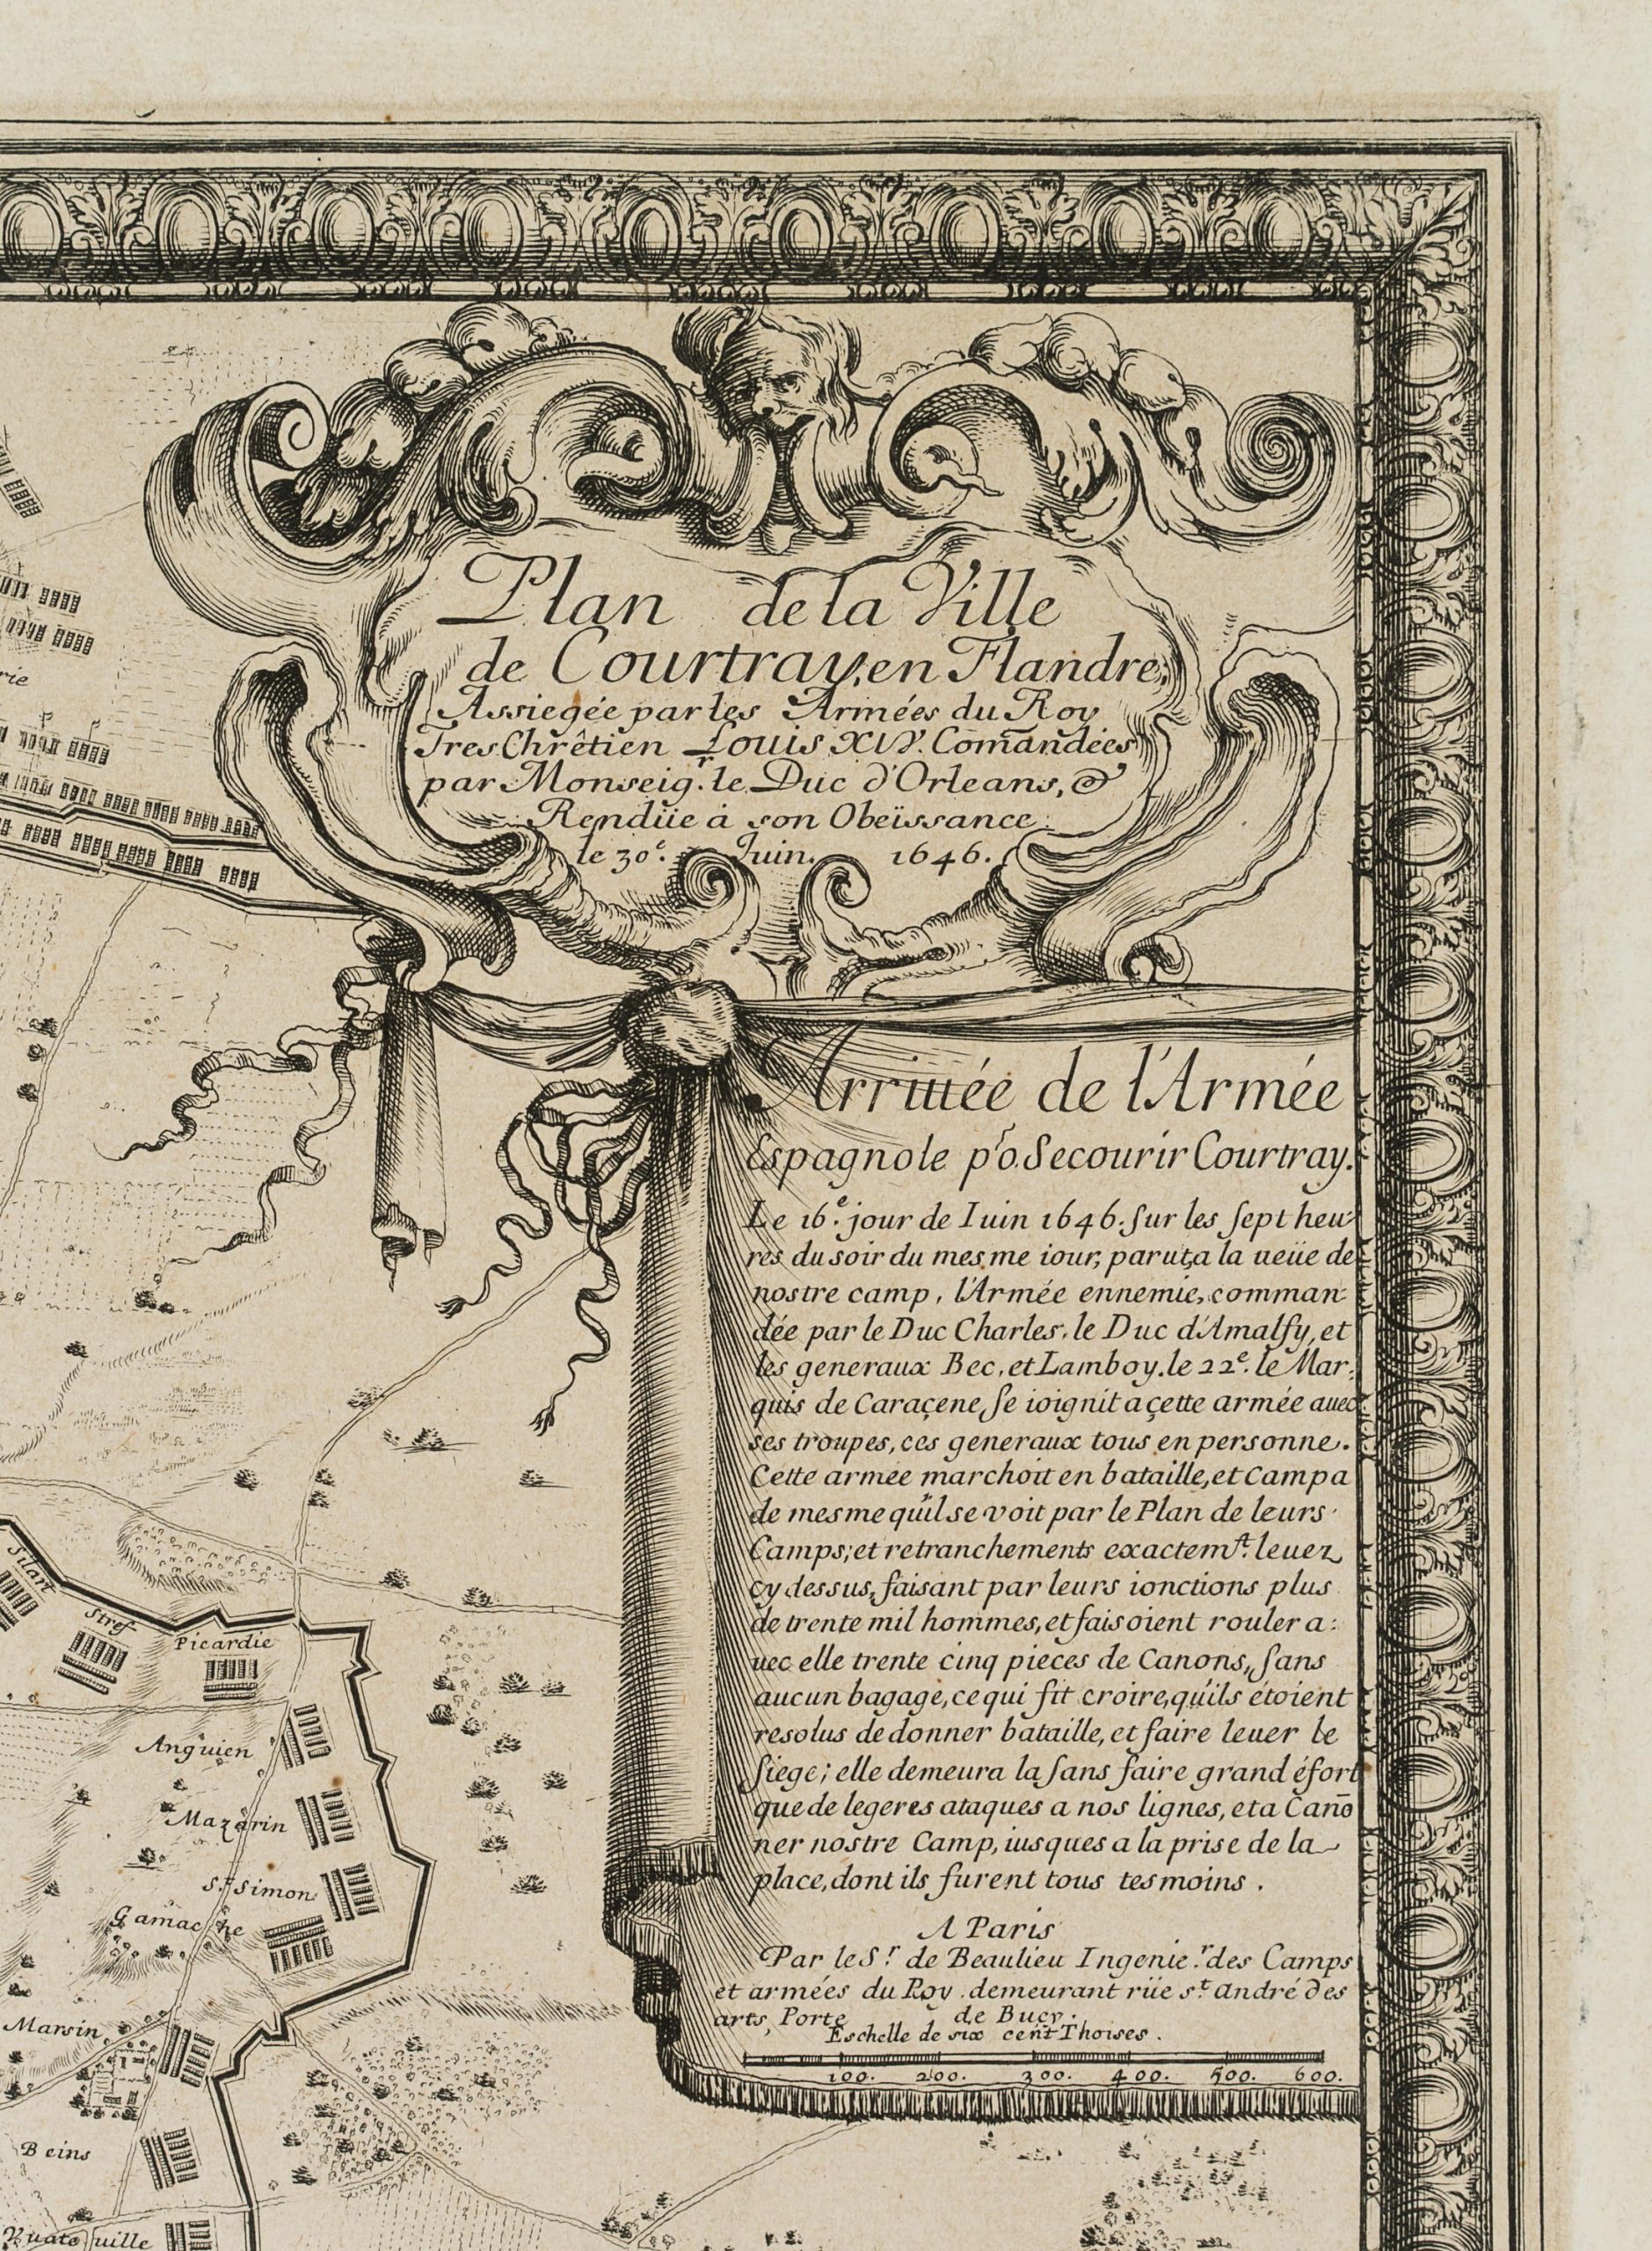 Plan de la Ville
de Courtray, en Flandre,
Assiegée par les Armées du Roy
Tres Chrêtien Louis XIV. Comandées
par Monseigr. le Duc d'Orleans, &
Rendüe à son Obeïssance
le 30e. Juin. 1646.
Arriuée de l'Armée
Espagnole pro. Secourir Courtray.
Le 16e. jour de Iuin 1646. sur les sept heu-
res du soir du mesme iour, parut, a la ueüe de
nostre camp, l'Armée ennemie, comman-
dée par le Duc Charles, le Duc d'Amalfy, et
les generaux Bec, et Lamboy. le 22e. le Mar-
quis de Caraçene, se ioignit a çette armée auec
ses troupes, ces generaux tous en personne.
Cette armée marchoit en bataille, et Campa
de mesme qu'il se voit par le Plan de leurs
Camps; et retranchements exactemt. leuez
cy dessus, faisant par leurs ionctions plus
de trente mil hommes, et faisoient rouler a:
uec elle trente cinq pieces de Canons, sans
aucun bagage, ce qui fit croire, qu'ils étoient
resolus de donner bataille, et faire leuer le
siege; elle demeura la sans faire grand éfort
que de legeres ataques a nos lignes, et a Canō
ner nostre Camp, iusques a la prise de la
place, dont ils furent tous tesmoins.
A Paris
Par le Sr. de Beaulieu Ingenier. des Camps
et armées du Roy. demeurant rüe st. André des
arts, Porte de Bucy.
Eschelle de six cent Thoises.
100. 200. 300. 400. 500. 600.
rie
Silart
Stref
Picardie
Anguien
Mazarin
St. Simon
Gamache
Marsin
Beins
Vuate uille